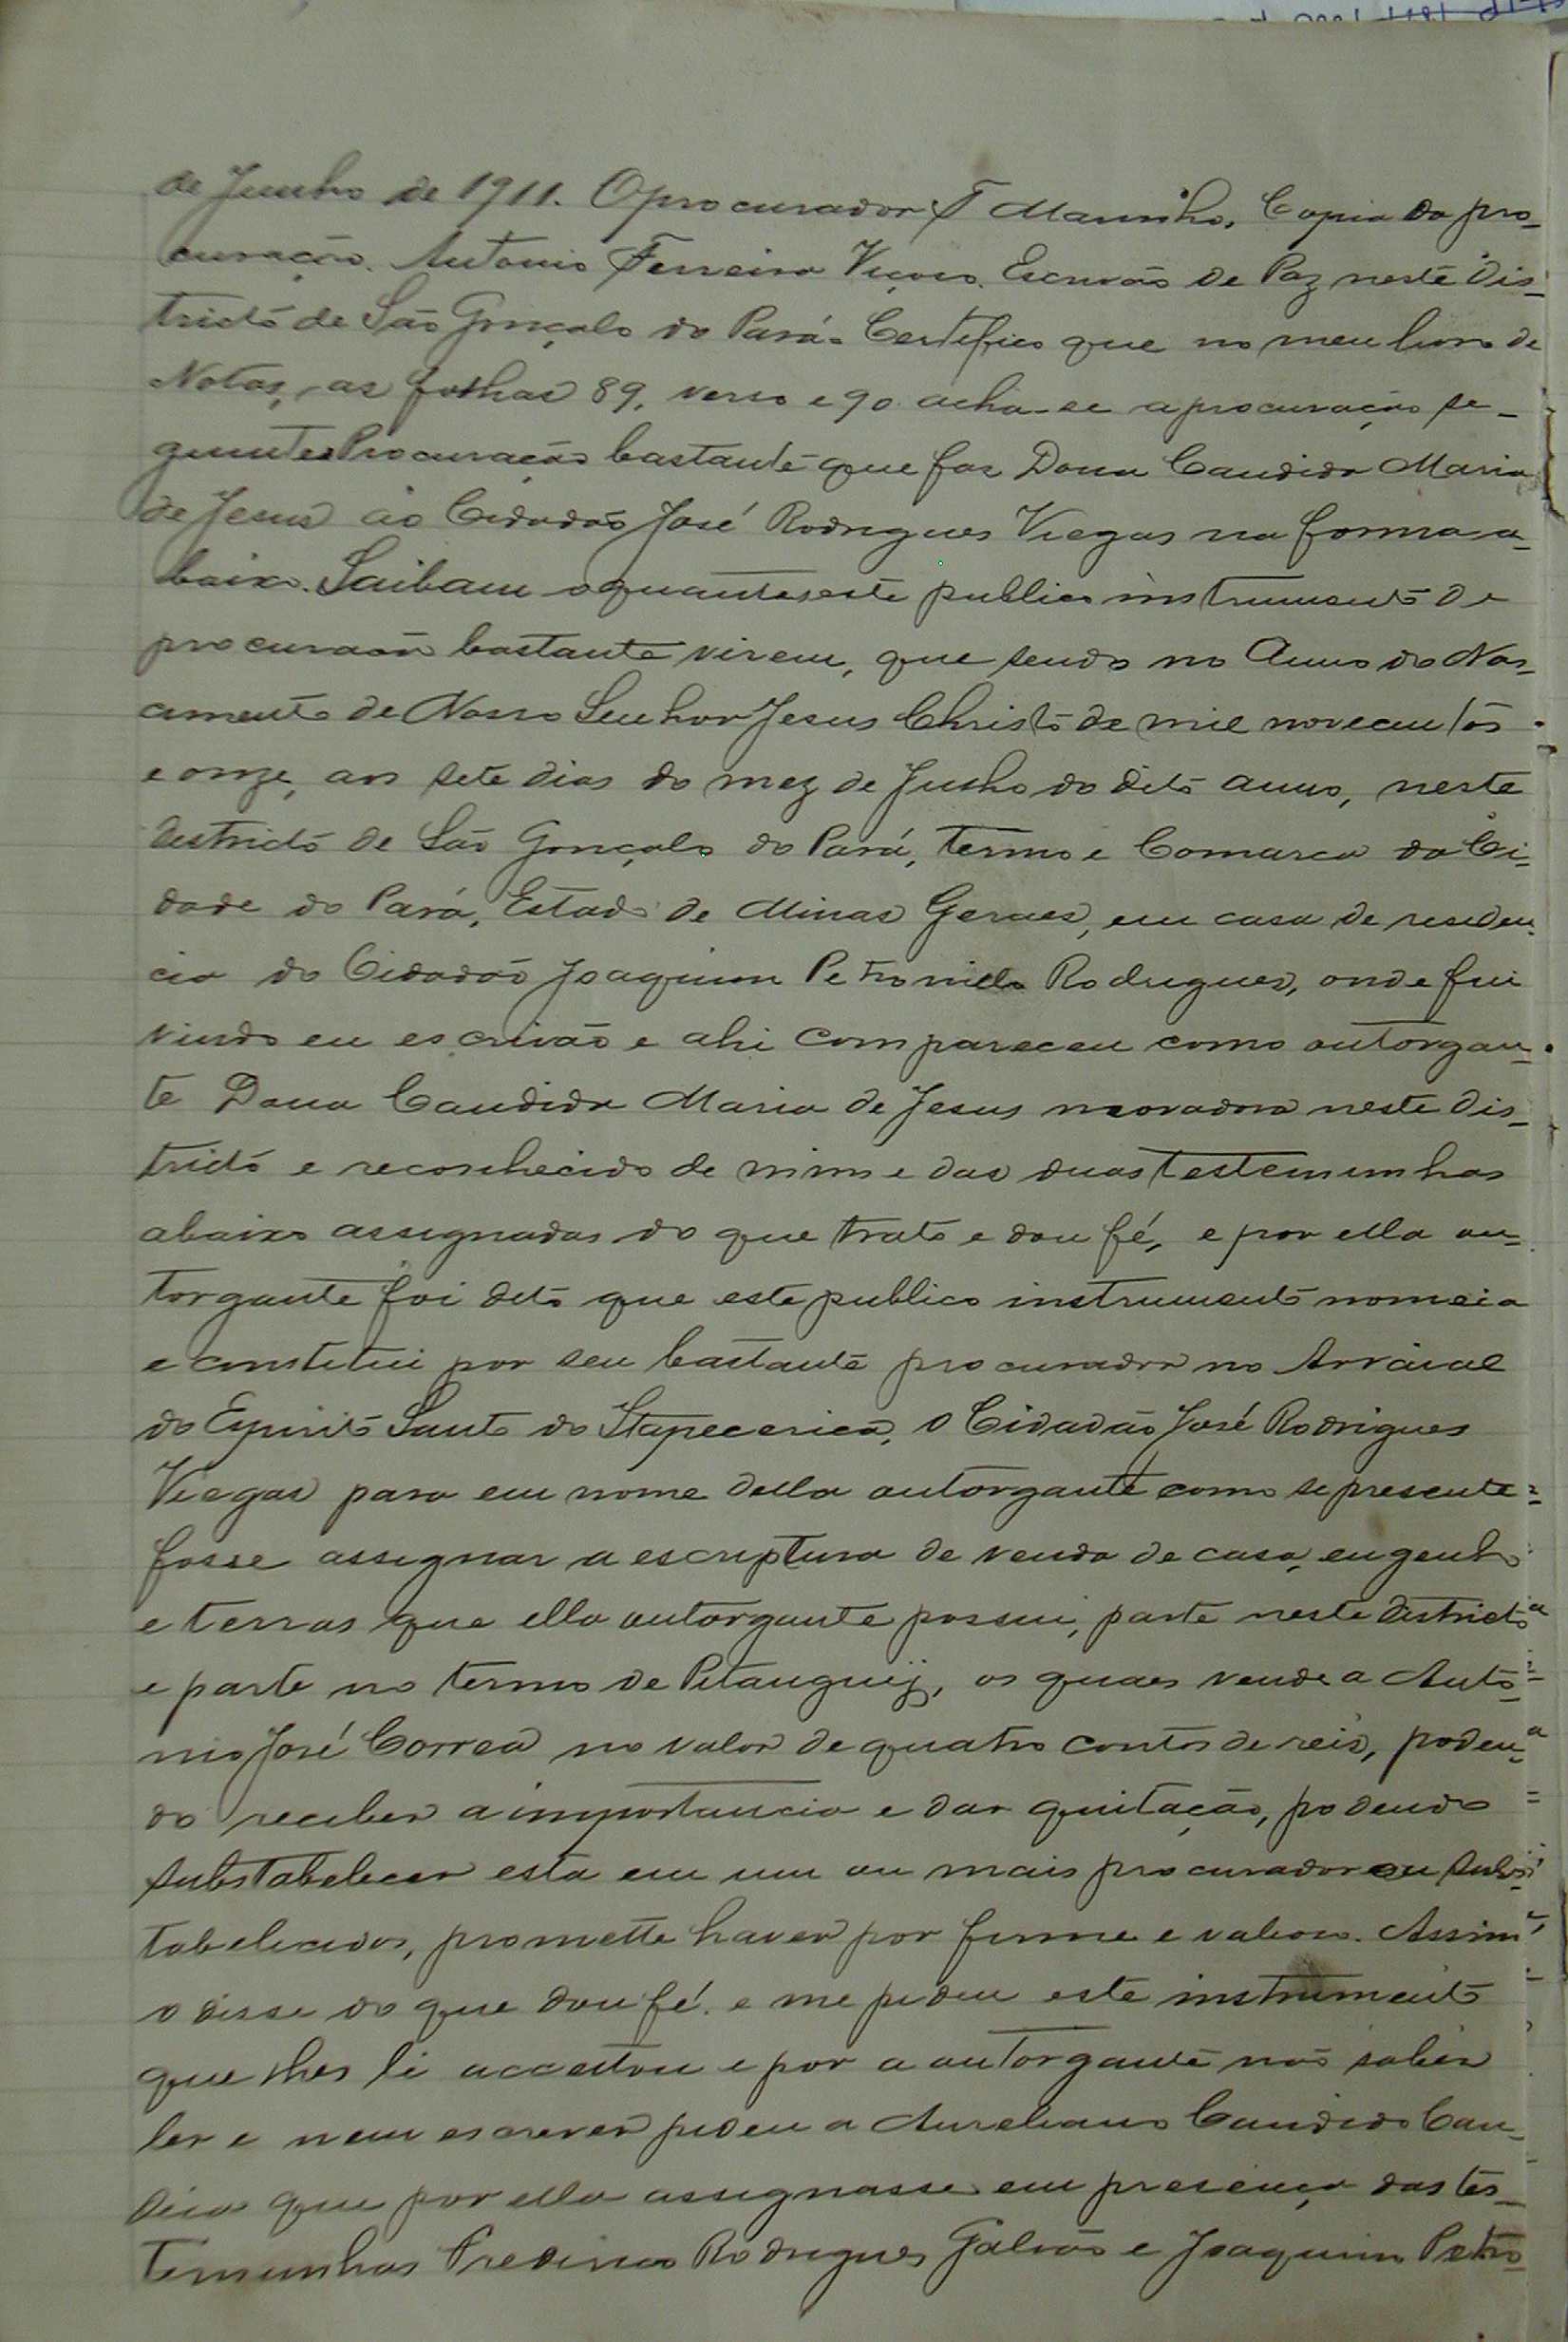 de Junho de 1911. O procurador F Marinho. Copia da pro-
curação. Antonio Ferreira Viçoso. Escrivão de Paz neste Dis-
tricto de São Gonçalo do Pará. Certifico que no meu livro de
Notas, as folhas 89, verso e 90 acha-se a procuração se-
guinte Procuração bastante que fas Dona Candida Maria
de Jesus ao Cidadão José Rodrigues Viegas na forma a-
baixo. Saibam quantos este publico instrumento de
procuraão bastante virem, que sendo no Anno do Nas-
cimento de Nosso Senhor Jesus Christo de mil novecentos
e onze, aos sete dias do mez de Junho do dito anno, neste
districto de São Gonçalo do Pará, termo e Comarca da Ci-
dade do Pará, Estado de Minas Geraes, em casa de residen-
cia do Cidadão Joaquim Petronillo Rodrigues, onde fui
vindo eu escrivão e ahi compareceu como outorgan-
te Dona Candida Maria de Jesus moradora neste dis-
tricto e reconhecido de mim e das duas testemunhas
abaixo assignadas do que trato e dou fé, e por ella ou-
torgante foi dito que este publico instrumento nomeia
e constitui por seu bastante procurador no Arraial
do Espirito Santo do Itapecerica, o Cidadão José Rodrigues
Viegas para em nome della outorgante como se presente
fosse assignar a escriptura de venda de casa, engenho
e terras que ella outorgante possui, parte neste districto
e parte no termo de Pitanguij, os quaes vende a Anto-
nio José Correa no valor de quatro contos de reis, poden-
do receber a importancia e dar quitação, podendo
substabelecer esta em um ou mais procurador ou subs-
tabelecidos, promette haver por firme e valioso. Assim
o disse do que dou fé. e me pediu este instrumento
que lhes li acceitou e por a outorgante não saber
ler e nem escrever pedeu a Aureliano Candido
que por ella assignasse em presença das tes-
temunhas Rodrigues Galvão e Joaquim Petro-